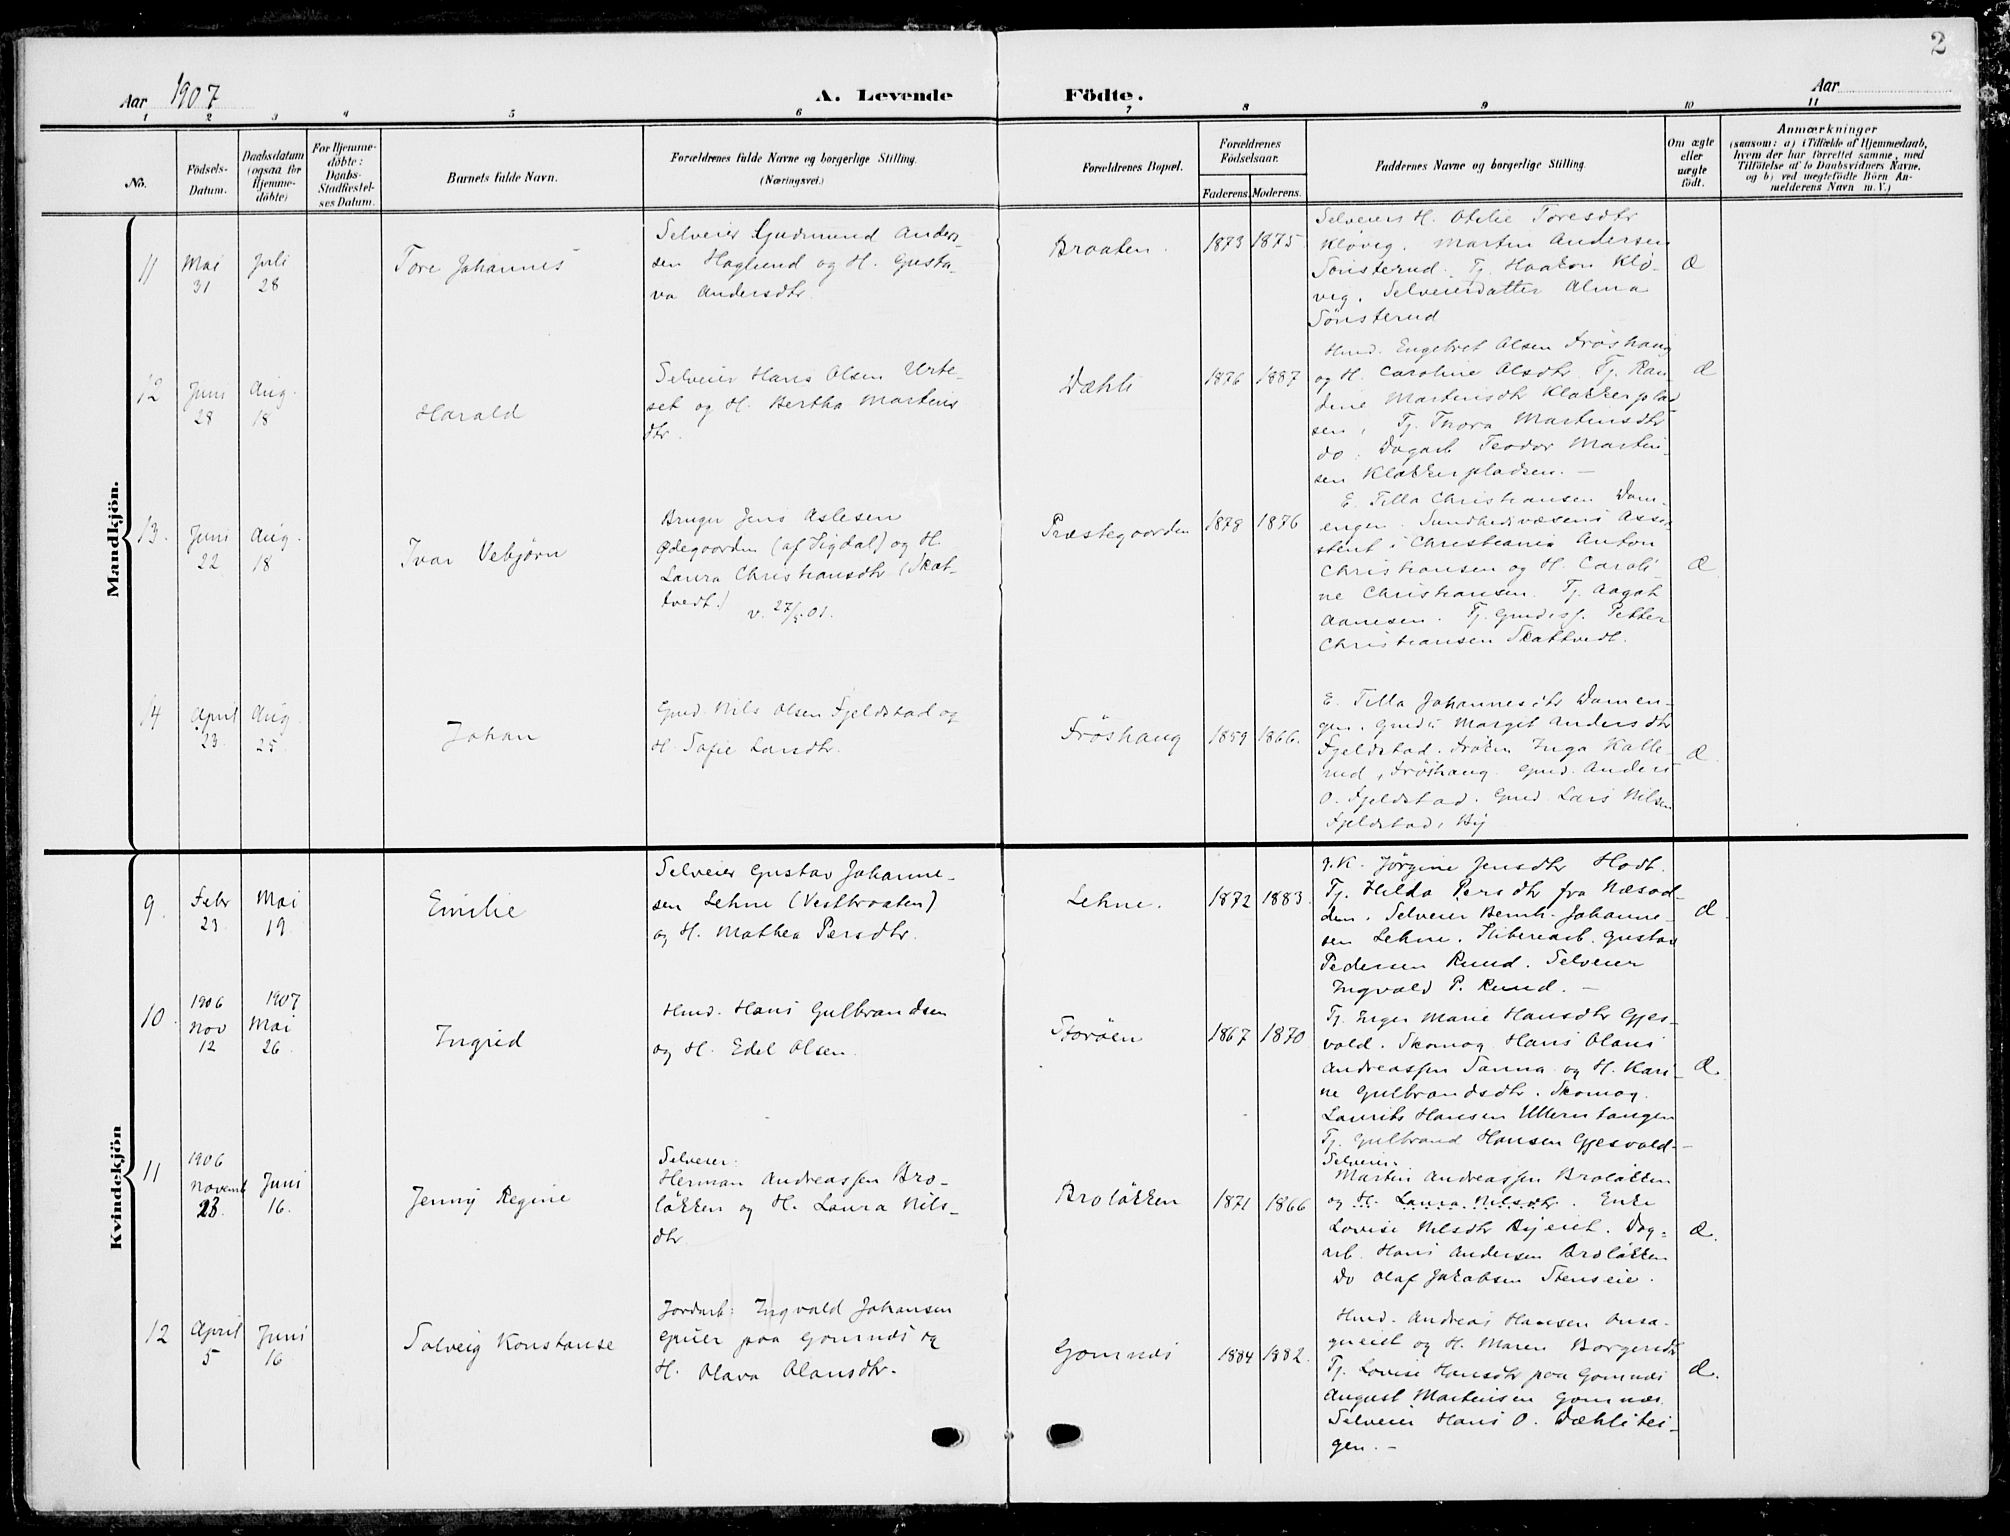 2
Aar 1907
A. Levende Födte.
Aar
1 2 3 4 5 6 7 8 9 10 11
No.
Födsels-
Datum.
Daabsdatum
(ogsaa for
Hjemme-
döbte)
For Hjemme-
döbte:
Daabs-
Stadfæstel-
ses Datum.
Barnets fulde Navn.
Forældrenes fulde Navne og borgerlige Stilling.
(Næringsvei.)
Forældrenes Bopæl.
Forældrenes
Födselsaar.
Faderens. Moderens.
Faddernes Navne og borgerlige Stilling.
Om ægte
eller
uægte
født.
Anmærkninger
(saasom: a) i Tilfælde af Hjemmedaab,
hvem der har forrettet samme, med
Tilföielse af to Daabsvidners Navne.
og b) ved uægtefödte Börn An-
melderens Navn m. V.)
Mandkjön.
11
Mai
31
Juli
28
Tore Johannes
Selveier Gudmund Anders-
sen Haglund og H. Gusta-
va Andersdtr
Braaten.
1873 1875.
Selveiers H. Otilie Toresdtr
Kløvig. Martin Andersen
Sønsterud. Tj. Haakon Klø-
vig. Selveierdatter Alma
Sønsterud
Æ
12
Juni
28
Aug.
18
Harald
Selveier Hans Olsen Urte-
set og H. Bertha Martins
dtr.
Dæhli
1876 1887
Hmd. Engebret Olsen Frøshaug
og H. Caroline Olsdtr. Tj. Ran-
dine Martinsdtr Klokkerplad
sen, Tj. Thora Martinsdtr
do. Dagarb Teodor Martin-
sen Klokkerpladsen. —
Æ
13.
Juni
22
Aug.
18
Ivar Vebjørn
Bruger Jens Aslesen
Ødegaarden (af Sigdal) og H.
Laura Christiansdtr (Skat-
tvedt.)
v. 27/5 01.
Præstegaarden
1878 1876
E. Tilla Christiansen Dam-
engen. Sundhedsvæsens Assi-
stent i Christiania Anton
Christiansen og H. Caroli-
ne Christiansen. Tj. Aagot
Aanesen. Tj. Gmdss. Petter
Christiansen Skattvedt.
Æ
14
April
23.
Aug.
25.
Johan
Gmd. Nils Olsen Fjeldstad og
H. Sofie Larsdtr.
Frøshaug
1859 1866.
E. Tilla Johannesdtr Damen-
gen. Gmds Marget Andersdtr
Fjeldstad. Frøken Inga Kolle-
rud, Frøshaug. Gmd. Anders
O. Fjeldstad. Gmd Lars Nilsen
Fjeldstad, By
Æ
Kvindekjön
9
Febr
23.
Mai
19
Emilie
Selveier Gustav Johanne-
sen Lehne (Vestbraaten)
og H. Mathea Persdtr.
Lehne.
1872 1883.
J.K. Jørgine Jensdtr Hodt.
Tj. Hilda Persdtr fra Næsod-
den. Selveier Bernh. Johanne-
sen Lehne. Sliberiarb. Gustav
Pedersen Rund. Selveier
Ingvald P. Rund. —
Æ.
10.
1906
Nov
12
1907
Mai
26.
Ingrid
Hmd. Hans Gulbrandsen
og H. Edel Olsen.
Storøen
1867 1870
Tj. Inger Marie Hansdtr Gjes-
vold. Skomag. Hans Olaus
Andreassen Sanna og H. Kari-
ne Gulbrandsdtr. Skomag.
Laurits Hansen Ullerntangen
Tj. Gulbrand Hansen Gjesvold—
Æ.
11
1906
Novemb
28.
Juni
16.
Jenny Regine
Selveier:
Herman Andreassen Bro-
løkken og H. Laura Nils-
dtr.
Broløkken
1871 1866
Selveier
Martin Andreassen Broløkken
og H. Laura Nilsdtr. Enke
Lovise Nilsdtr Byeiet. Dag-
arb. Hans Andersen Broløkken
Do Olaf Jakobsen Stenseie.
Æ.
12
April
5
Juni
16
Solveig Konstanse
Jordarb. Ingvald Johansen
Gruer paa Gomnæs og
H. Olava Olausdtr.
Gomnæs
1884 1882.
Hmd. Andreas Hansen Onsa-
gereiet og H. Maren Borgersdtr
Tj. Lovise Hansdtr paa Gomnæs
August Martinsen Gomnæs.
Selveier Hans O. Dæhlitei-
gen. —
Æ.